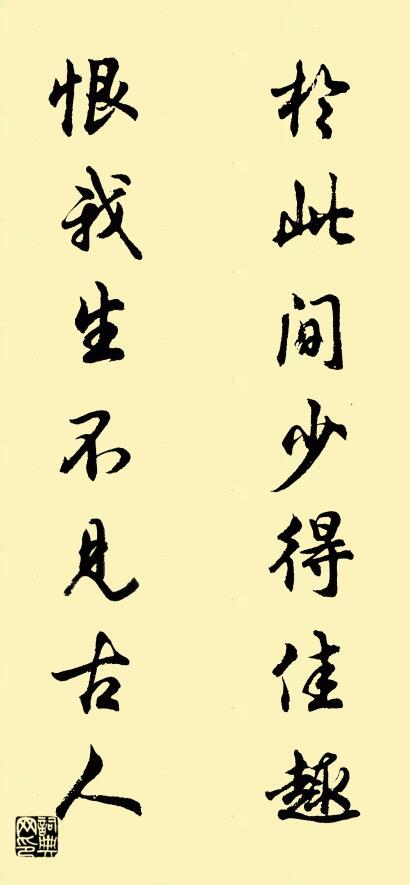 於此间少得佳趣
恨我生不見古人
詞典网印